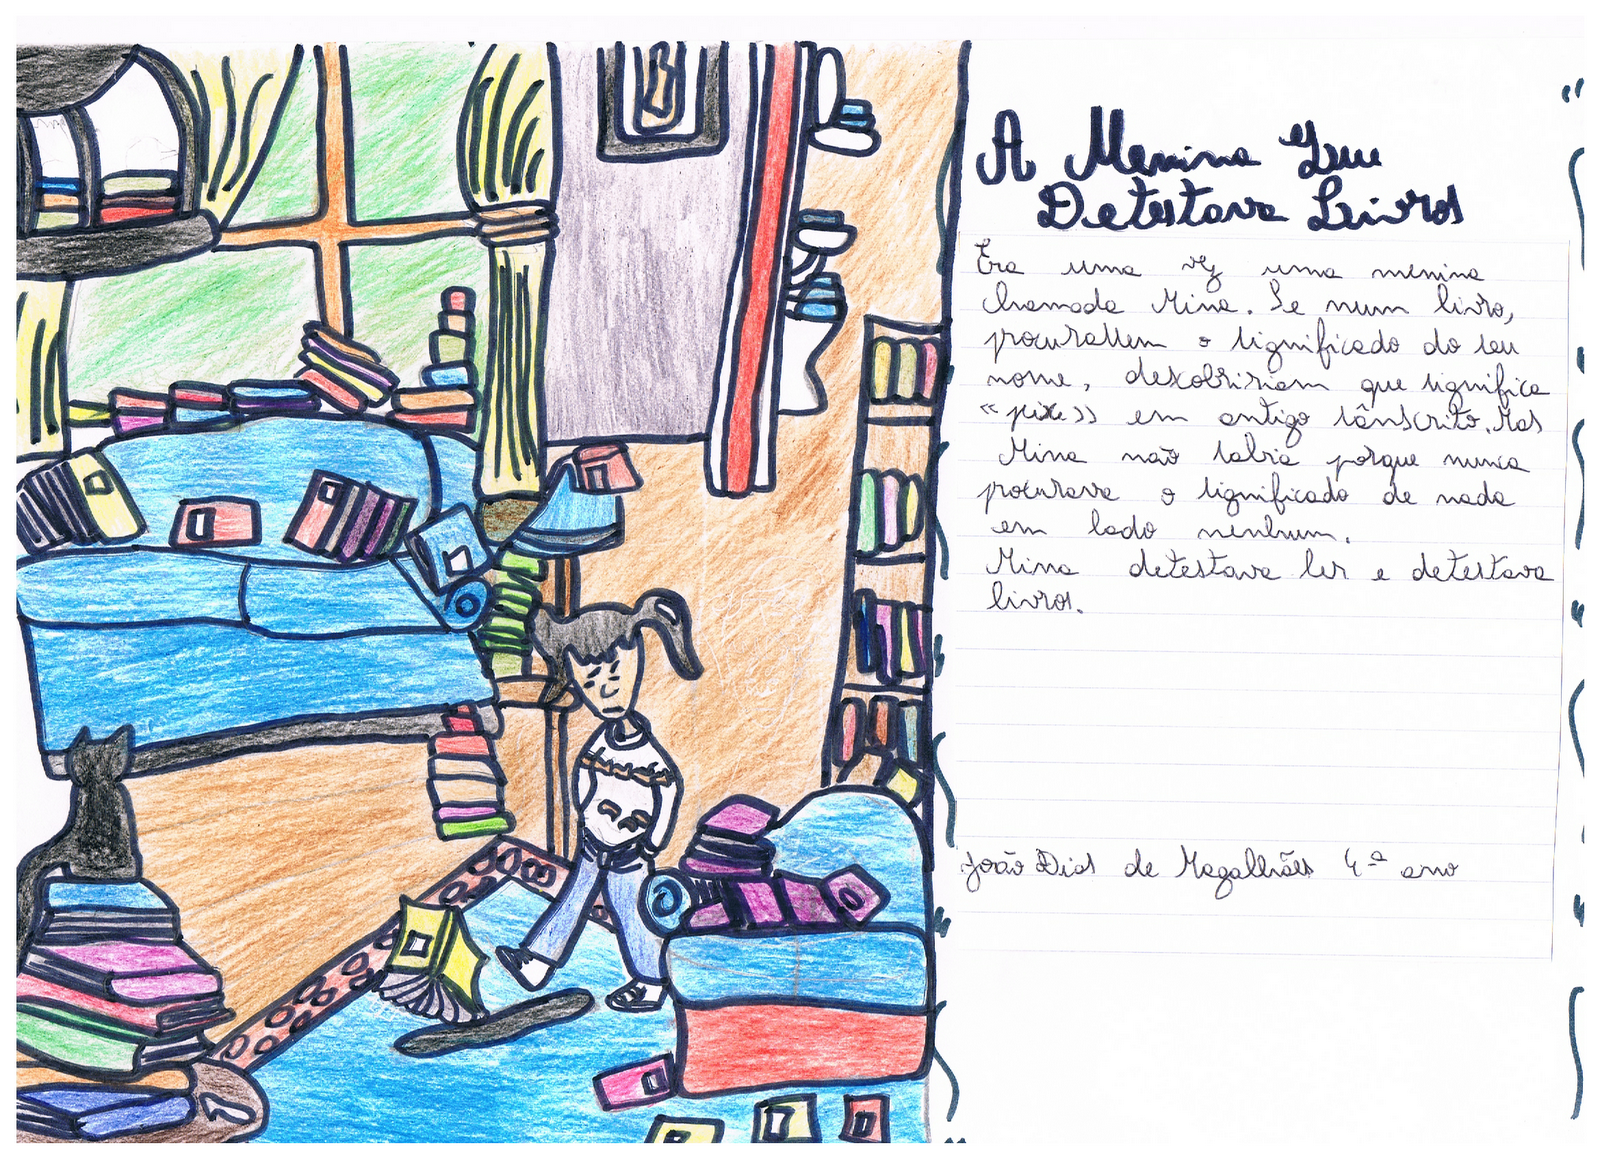 A Menina Que
Detestava Livros
Era uma vez uma menina
chamada Mina. Se num livro,
procurassem o significado do seu
nome, descobririam que significa
«peixe» em antigo sânscrito. Mas
Mina não sabia porque nunca
procurava o significado de nada
em lado nenhum.
Mina detestava ler e detestava
livros.
João Dias de Magalhães 4º ano